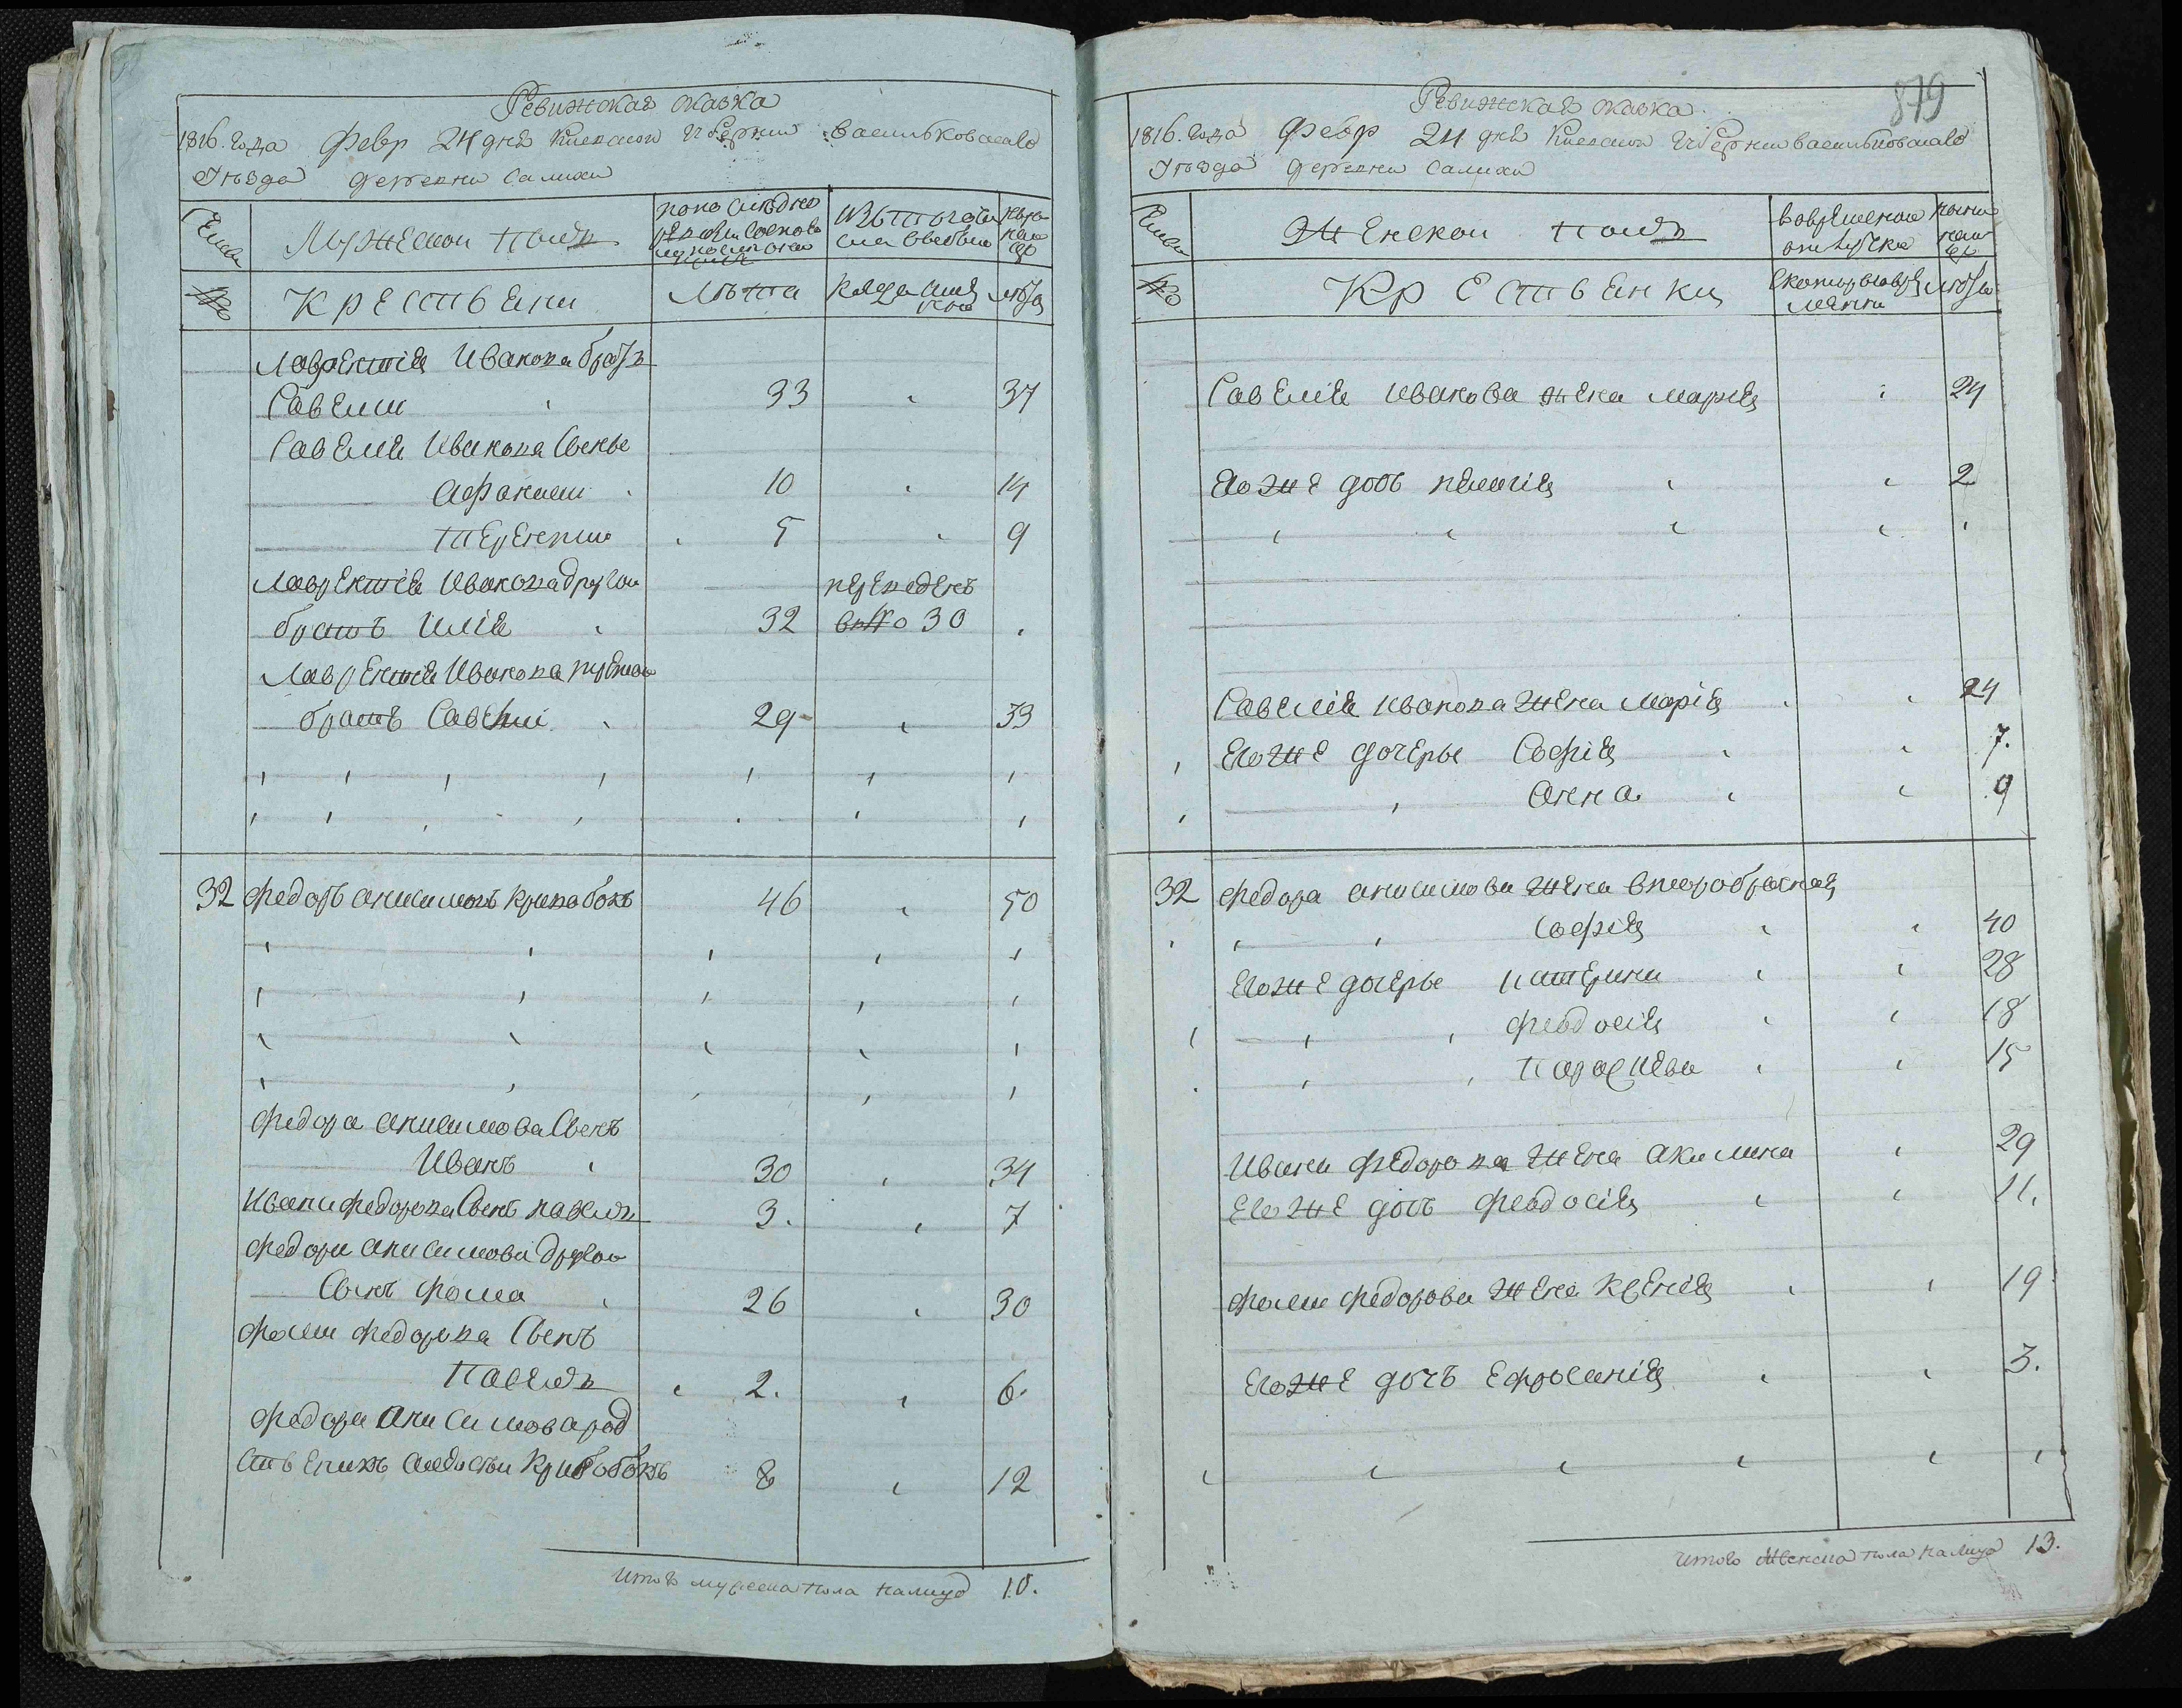 Ревижская сказка
1816. года Февр 24 дня Киевской Губернии васильковскаго
Уезда деревни Салихи
Семьи
Мужеской полъ
изъ того числа выбыло
ныне на лицо
№
Крестьяни
Лѣта
когда имянно
лѣта
Лаврентія Иванова братъ
Савелии 33 37
Савелія Иванова Сынье
Афанасии 10 14
Терентии 5 9
Лаврентія Иванова другои переведенъ
братъ Илія 32 в №о 30
Лаврентія Иванова третеи
братъ Савелии 29 33
32 Федоръ анисимовъ кривобокъ 46 50
Федора анисимова Сынъ
Иванъ 30 34
Ивана федорова Сынъ павелъ 3. 7
Федора анисимова другои
Сынъ фома 26 30
Фомы федорова Сынъ
Павелъ 2. 6.
Федора Анисимова род
ственикъ Кривобокъ 8 12
Итого мужеска пола налицо 10.
879
Ревижская сказка
1816. года Февр 24 дня Киевской Губернии васильковскаго
Уезда деревни Салихи
Семьи
Женской полъ
во временной отлучке
ныне на лицо
№
Крестьянки
с котораго времяни
лѣта
Савелія Иванова жена марія 24
Его же дочь пелагія 2
Савелія иванова жена Марія 24
Его же дочерье Софія 7.
Анна 9
32 Федора анисимова жена второбрачная
Софія 40
Его же дочерье катерина 28
Феодосія 18
Параскева 15
Ивана федорова жена акилина 29
Его же дочь Феодосія 11.
Фомы федорова жена Ксенія 19
Его же дочь Ефросинія 3.
Итого женска пола налицо 13.